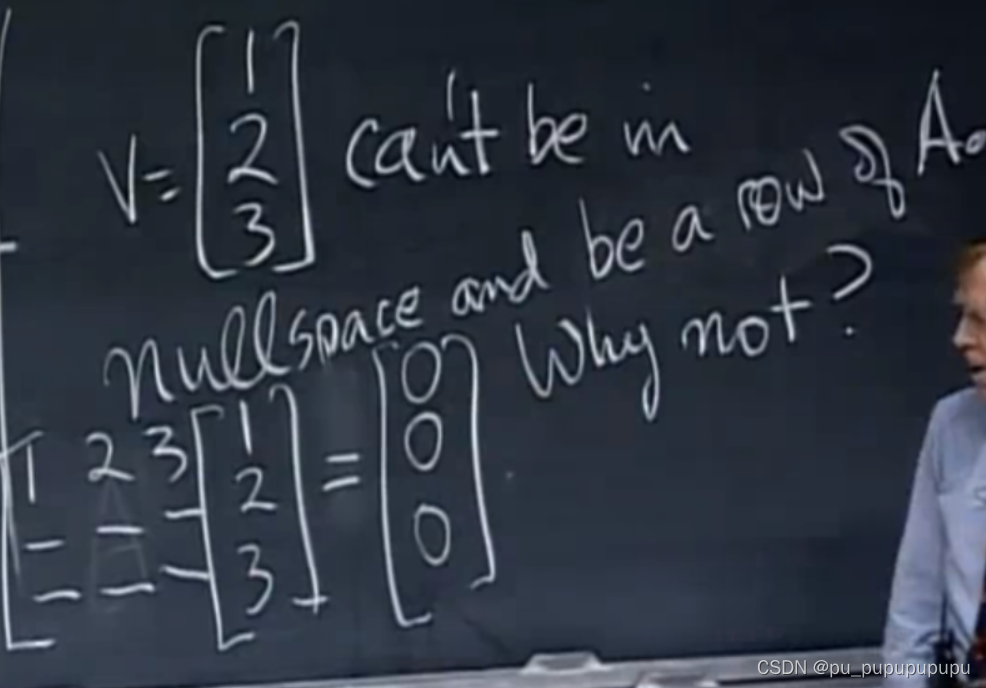 V = [1 2 3] can't be in
nullspace and be a row of A.
Why not?
[1 2 3
– – –
– – –] [1 2 3] = [0 0 0]
CSDN @pu_pupupupupu